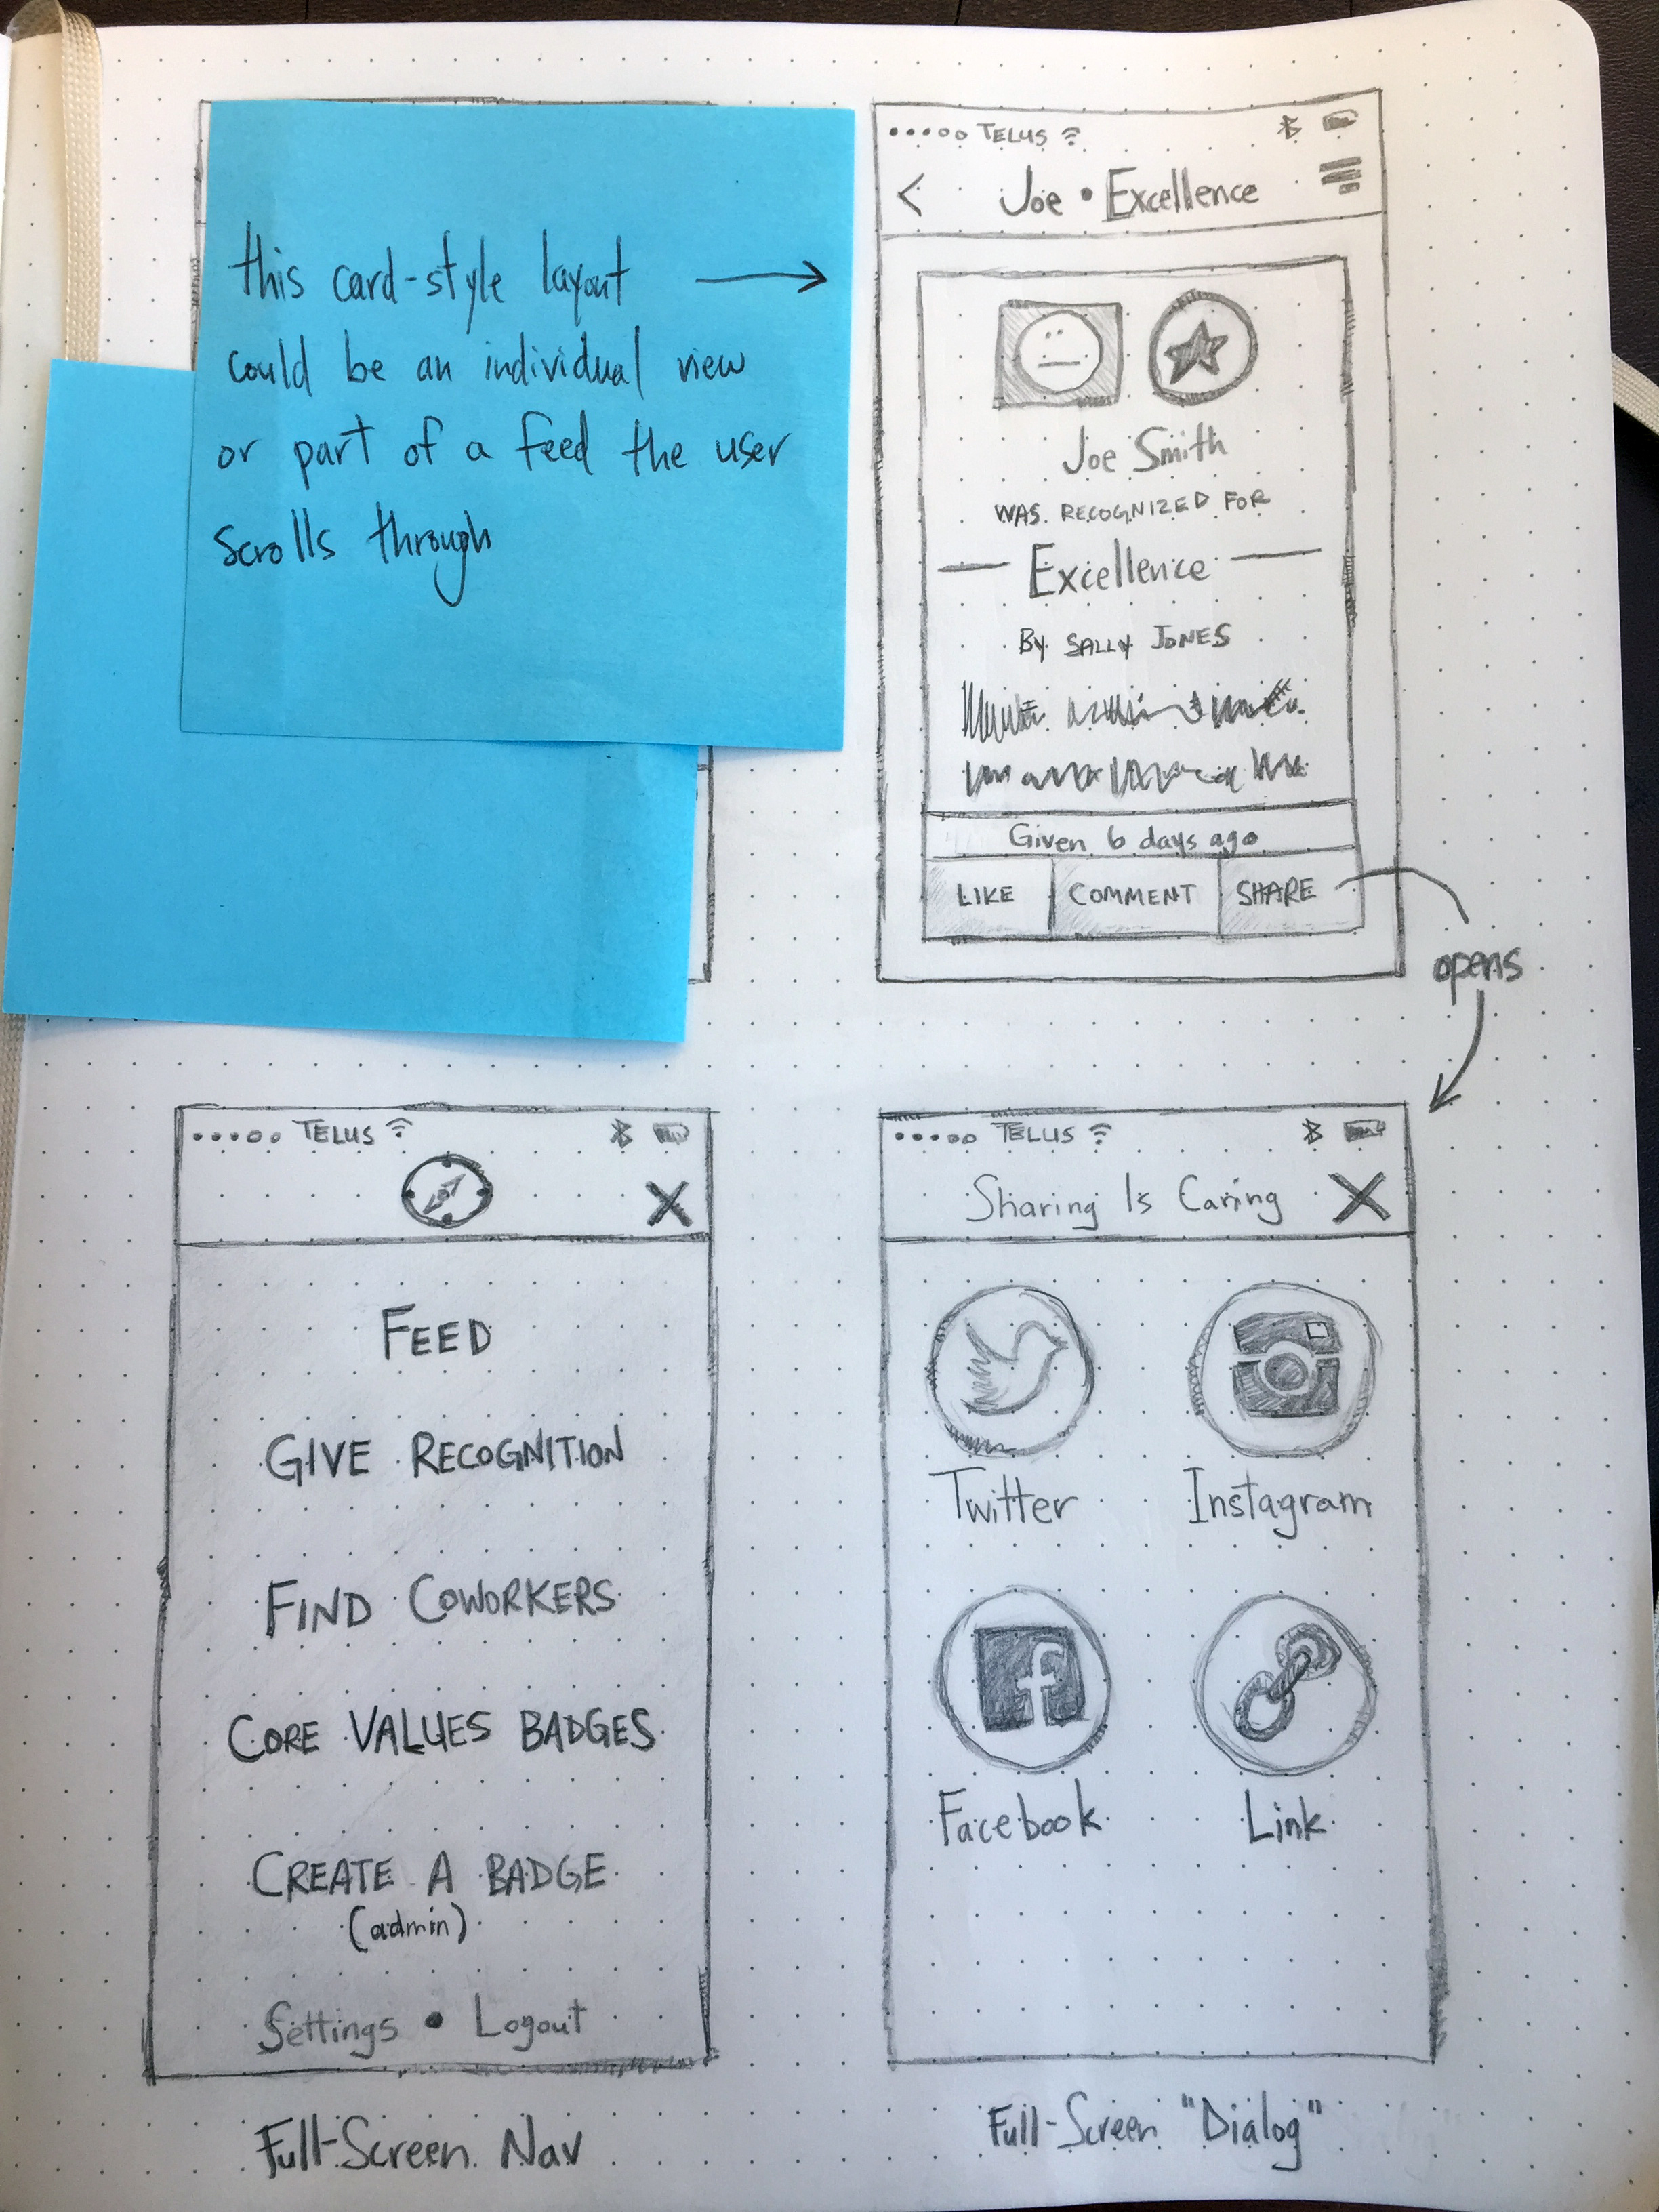 this card-style layout
could be an individual view
or part of a feed the user
scrolls through
TELUS
< Joe • Excellence
Joe Smith
WAS RECOGNIZED FOR
Excellence
By SALLY JONES
Given 6 days ago
LIKE COMMENT SHARE
opens
TELUS
X
FEED
GIVE RECOGNITION
FIND COWORKERS
CORE VALUES BADGES
CREATE A BADGE
(admin)
Settings • Logout
Full-Screen Nav
TELUS
Sharing Is Caring X
Twitter Instagram
f
Facebook Link
Full-Screen "Dialog"